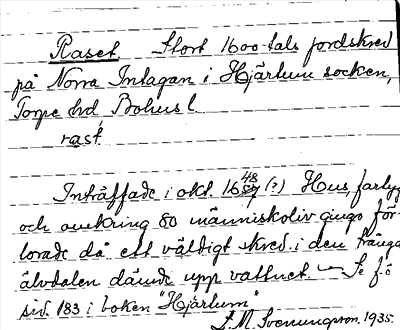 Raset Stort 1600-tals jordskred
på Norra Intagan i Hjärtum socken,
Torpe hd Bohusl
rast
Inträffade i okt. 1648 (?) Hus, farty
och omkring 80 människoliv gingo för-
lorade då ett väldigt skred i den trånga
älvdalen dämde upp vattnet. — Se f.ö
sid. 183 i boken "Hjärtum"
S. M. Svenungson. 1935.